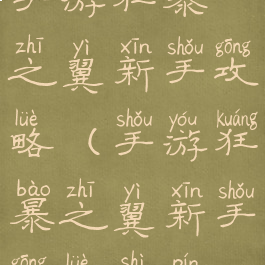 手游狂暴
zhī yì xīn shǒu gōng
之翼新手攻
lüè shǒu yóu kuáng
略(手游狂
bào zhī yì xīn shǒu
暴之翼新手
gōng lüè shì pín